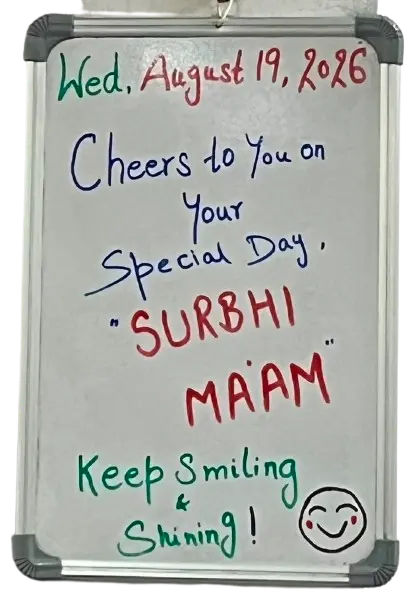 Wed, August 19, 2026
Cheers to You on
Your
Special Day,
"SURBHI
MA'AM"
Keep Smiling
&
Shining!